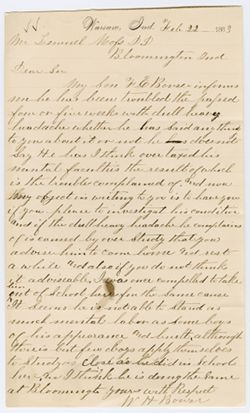 Warsaw, Ind Feb 22 - 1883
Mr Lemuel Moss D.D.
Bloomington Ind
Dear Sir
My son F E Bowser informs
me he has been troubled the passed
four or five weeks with dull heavy
headache whether he has said anything
to you about it or not he doesnt
say He has I think over taxed his
mental faculties the result of which
is the trouble complained of and now
My object in writing to you is to have you
if you please to investigate his condition
and if the dull heavy headache he complains
of is caused by over study that you
advise him to come home and rest
a while and also if you do not think
it adviseable I was once compelled to take
him out of School here for the same cause
It seems he is not able to stand as
much mental labor as some boys
of his appearance and built, although
there is but few boys apply themselves
to study as close as he did in schools
here and I think he is doing the same
at Bloomington yours with Respect
W H Bowser